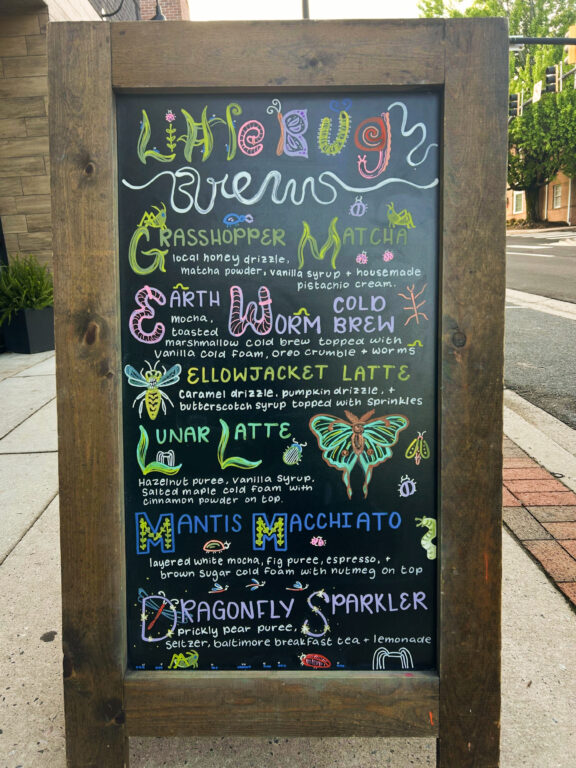 Little Bug
Brews
GRASSHOPPER MATCHA
local honey drizzle,
matcha powder, vanilla syrup + housemade
pistachio cream.
EARTH WORM COLD
BREW
mocha,
toasted
marshmallow cold brew topped with
vanilla cold foam, oreo crumble + worms
ELLOWJACKET LATTE
caramel drizzle, pumpkin drizzle, +
butterscotch syrup topped with sprinkles
LUNAR LATTE
Hazelnut puree, vanilla syrup,
salted maple cold foam with
cinnamon powder on top.
MANTIS MACCHIATO
layered white mocha, fig puree, espresso, +
brown sugar cold foam with nutmeg on top
DRAGONFLY SPARKLER
prickly pear puree,
seltzer, baltimore breakfast tea + lemonade